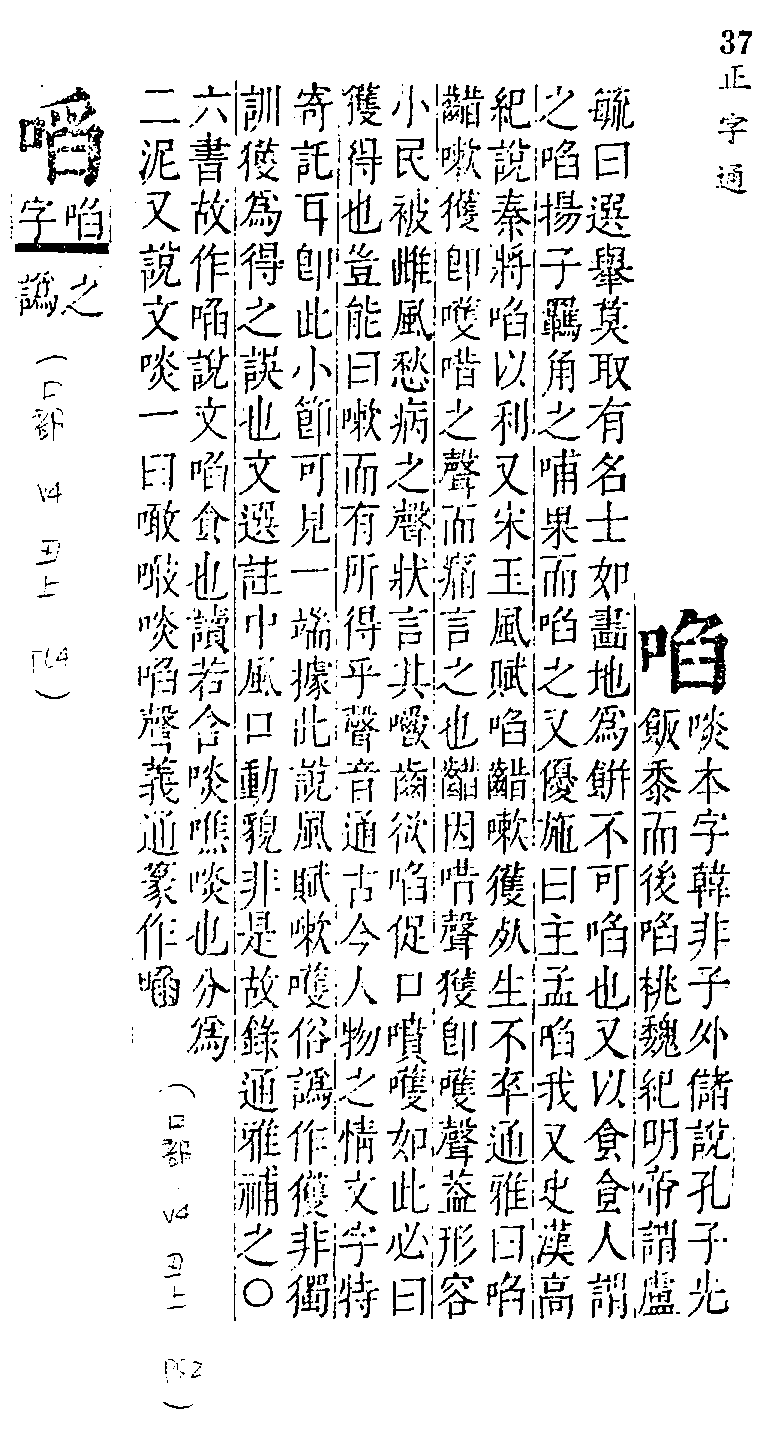 37
正字通
啗
啖本字韓非子外儲說孔子先
飯黍而後啗桃魏紀明帝謂盧
毓曰選舉莫取有名士如畵地爲餠不可啗也又以食食人謂
之啗揚子羈角之哺果而啗之又優施曰主孟啗我又史漢高
紀說秦將啗以利又宋玉風賦啗齰嗽獲死生不卒通雅曰啗
齰嗽獲卽嚄唶之聲而痛言之也齰因唶聲獲卽嚄聲葢形容
小民被雌風愁病之聲狀言其齧齒欲啗促口噴嚄如此必曰
獲得也豈能曰嗽而有所得乎聲音通古今人物之情文字特
寄託耳卽此小節可見一端據此說風賦嗽嚄俗譌作獲非獨
訓獲爲得之誤也文選註中風口動貌非是故錄通雅補之○
六書故作啗說文啗食也讀若含啖噍啖也分爲
二泥又說文啖一曰噉噉啖啗聲義通篆作啗
(口部 V4 丑上 P52)
啗
啗字
之譌
(口部 V4 丑上 P64)